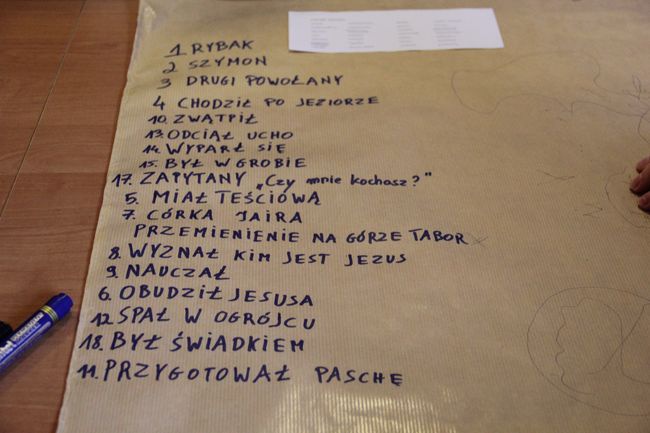 1 RYBAK
2 SZYMON
3 DRUGI POWOŁANY
4 CHODZIŁ PO JEZIORZE
10. ZWĄTPIŁ
13. ODCIĄŁ UCHO
14. WYPARŁ SIĘ
15. BYŁ W GROBIE
17. ZAPYTANY „Czy mnie kochasz?"
5. MIAŁ TEŚCIOWĄ
7. CÓRKA JAIRA
PRZEMIENIENIE NA GÓRZE TABOR
8. WYZNAŁ KIM JEST JEZUS
9. NAUCZAŁ
6. OBUDZIŁ JESUSA
12 SPAŁ W OGRÓJCU
18. BYŁ ŚWIADKIEM
11. PRZYGOTOWAŁ PASCHĘ